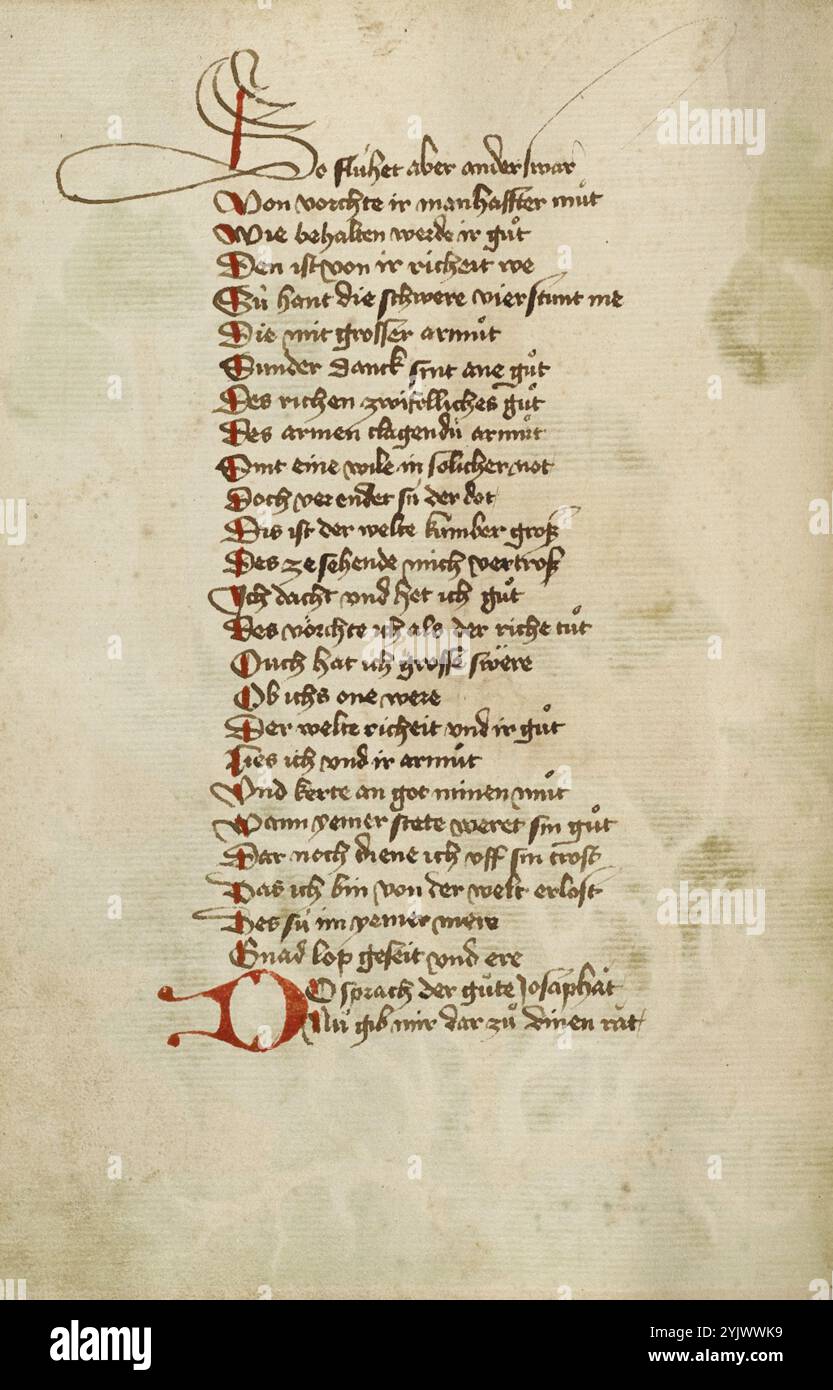 So fluhet aber anderswar
Von vorchte ir manhaffter muͦt
Wie behalten werde ir guͦt
Den ist von ir richeit we
Sù hant die schwere vierstunt me
Die mit grosser armuͦt
Sunder danck sint ane guͦt
Des richen zwifelliches guͦt
Des armen clagendù armuͦt
Sint eine wile in solicher not
Doch verendet sù der dot
Dis ist der welte kumber groß
Des ze sehende mich vertroß
Ich dacht vnd het ich guͦt
Des vörchte ich als der riche tuͦt
Ouch hat ich grosse swere
Ob ichs one were
Der welte richeit vnd ir guͦt
Lies ich vnd ir armuͦt
Vnd kerte an got minen muͦt
Wann yemer stete weret sin guͦt
Dar noch diene ich vff sin trost
Das ich bin von der welt erlost
Des sù im yemer mere
Gnad lop geseit vnd ere
DO sprach der guͦte Josaphat
Nù gib mir dar zuͦ dinen rat
alamy
alamy
alamy
a
alamy
Image ID: 2YJWWK9
www.alamy.com